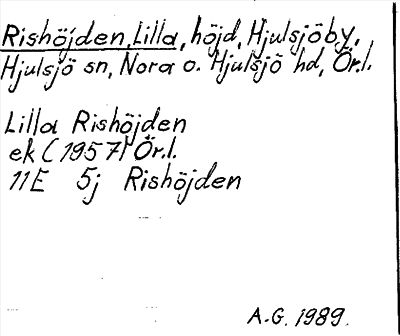 Rishöjden, Lilla, höjd, Hjulsjöby,
Hjulsjö sn, Nora o. Hjulsjö hd, Ör.l.
Lilla Rishöjden
ek (1957) Ör.l.
11E 5j Rishöjden
A.G. 1989.